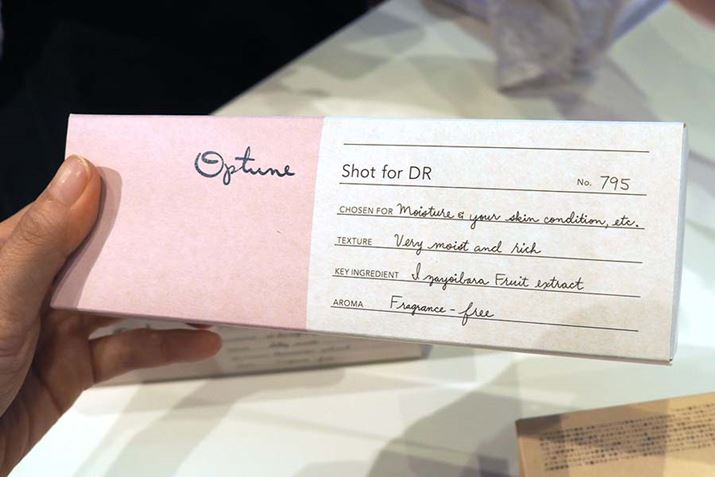 Optune
Shot for DR
No. 795
CHOSEN FOR Moisture & your skin condition, etc.
TEXTURE Very moist and rich
KEY INGREDIENT Izayoibara Fruit extract
AROMA Fragrance-free